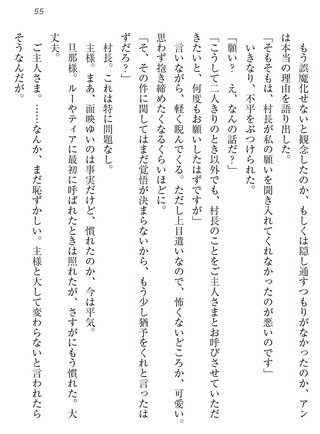 55
もう誤魔化せないと観念したのか、もしくは隠し通すつもりがなかったのか、アン
は本当の理由を語り出した。
「そもそもは、村長が私の願いを聞き入れてくれなかったのが悪いのです」
いきなり、不平をぶつけられた。
「願い？　え、なんの話だ？」
「こうして二人きりのとき以外でも、村長のことをご主人さまとお呼びさせていただ
きたいと、何度もお願いしたはずですが」
言いながら、軽く睨んでくる。ただし上目遣いなので、怖くないどころか、可愛い。
思わず抱き締めたくなるくらいほどに。
「そ、その件に関してはまだ覚悟が決まらないから、もう少し猶予をくれと言ったは
ずだろ？」
村長。これは特に問題なし。
主様。まあ、面映ゆいのは事実だけど、慣れたのか、今は平気。
旦那様。ルーやティアに最初に呼ばれたときは照れたが、さすがにもう慣れた。大
丈夫。
ご主人さま。……なんか、まだ恥ずかしい。主様と大して変わらないと言われたら
そうなんだが。